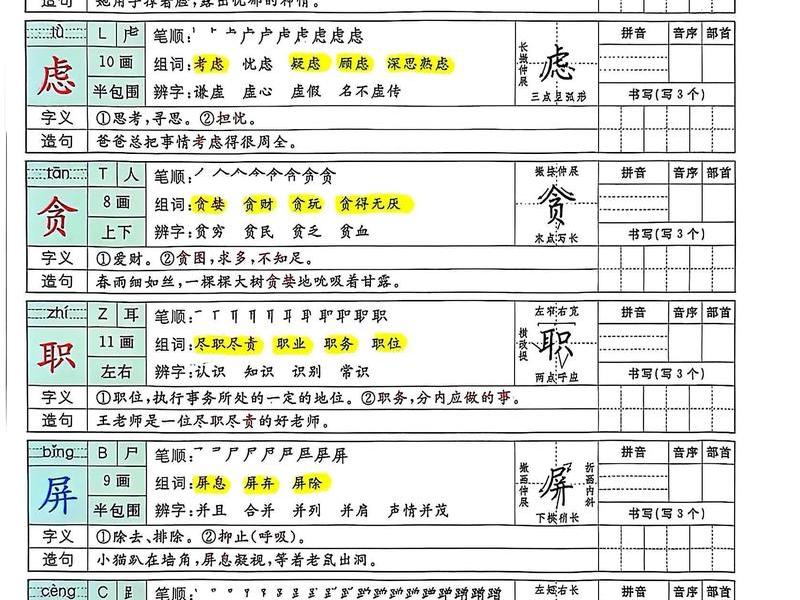 造句 她用手撑着脸，露出忧郁的神情。
lǜ L 虍 笔顺: 拼音 音序 部首
虑 10画 组词:考虑 忧虑 疑虑 顾虑 深思熟虑
半包围 辨字:谦虚 虚心 虚假 名不虚传 三点呈弧形 书写(写3个)
长撇伸展 虑
字义 ①思考,寻思。②担忧。
造句 爸爸总把事情考虑得很周全。
tān T 人 笔顺: 撇捺伸展 拼音 音序 部首
贪 8画 组词:贪婪 贪财 贪玩 贪得无厌 贪
上下 辨字:贫穷 贫民 贫乏 贫血 末点写长 书写(写3个)
字义 ①爱财。②贪图,求多,不知足。
造句 春雨细如丝,一棵棵大树贪婪地吮吸着甘露。
zhí Z 耳 笔顺: 左窄右宽 拼音 音序 部首
职 11画 组词:尽职尽责 职业 职务 职位 横改提 职
左右 辨字:认识 知识 识别 常识 两点呼应 书写(写3个)
字义 ①职位,执行事务所处的一定的地位。②职务,分内应做的事。
造句 王老师是一位尽职尽责的好老师。
bǐng B 尸 笔顺: 拼音 音序 部首
屏 9画 组词:屏息 屏弃 屏除 撇画伸展 屏 折画内斜
半包围 辨字:并且 合并 并列 并肩 声情并茂 下横稍长 书写(写3个)
字义 ①除去、排除。②抑止(呼吸)。
造句 小猫趴在墙角,屏息凝视,等着老鼠出洞。
cèng C 笔顺: 左短右长 拼音 音序 部首